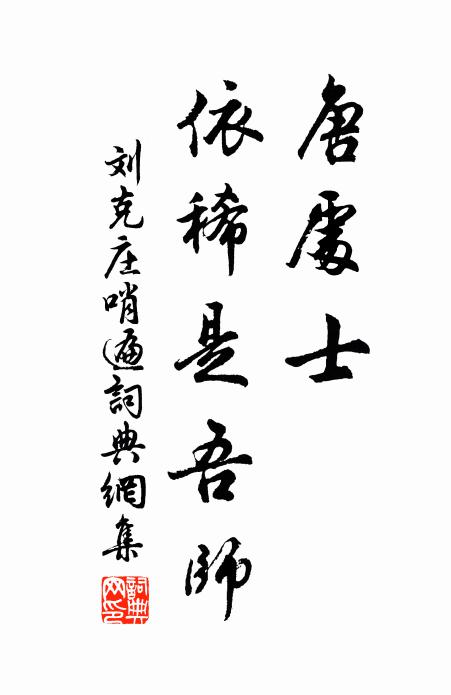 唐處士
依稀是吾師
刘克庄哨遍詞典網集
詞典網印